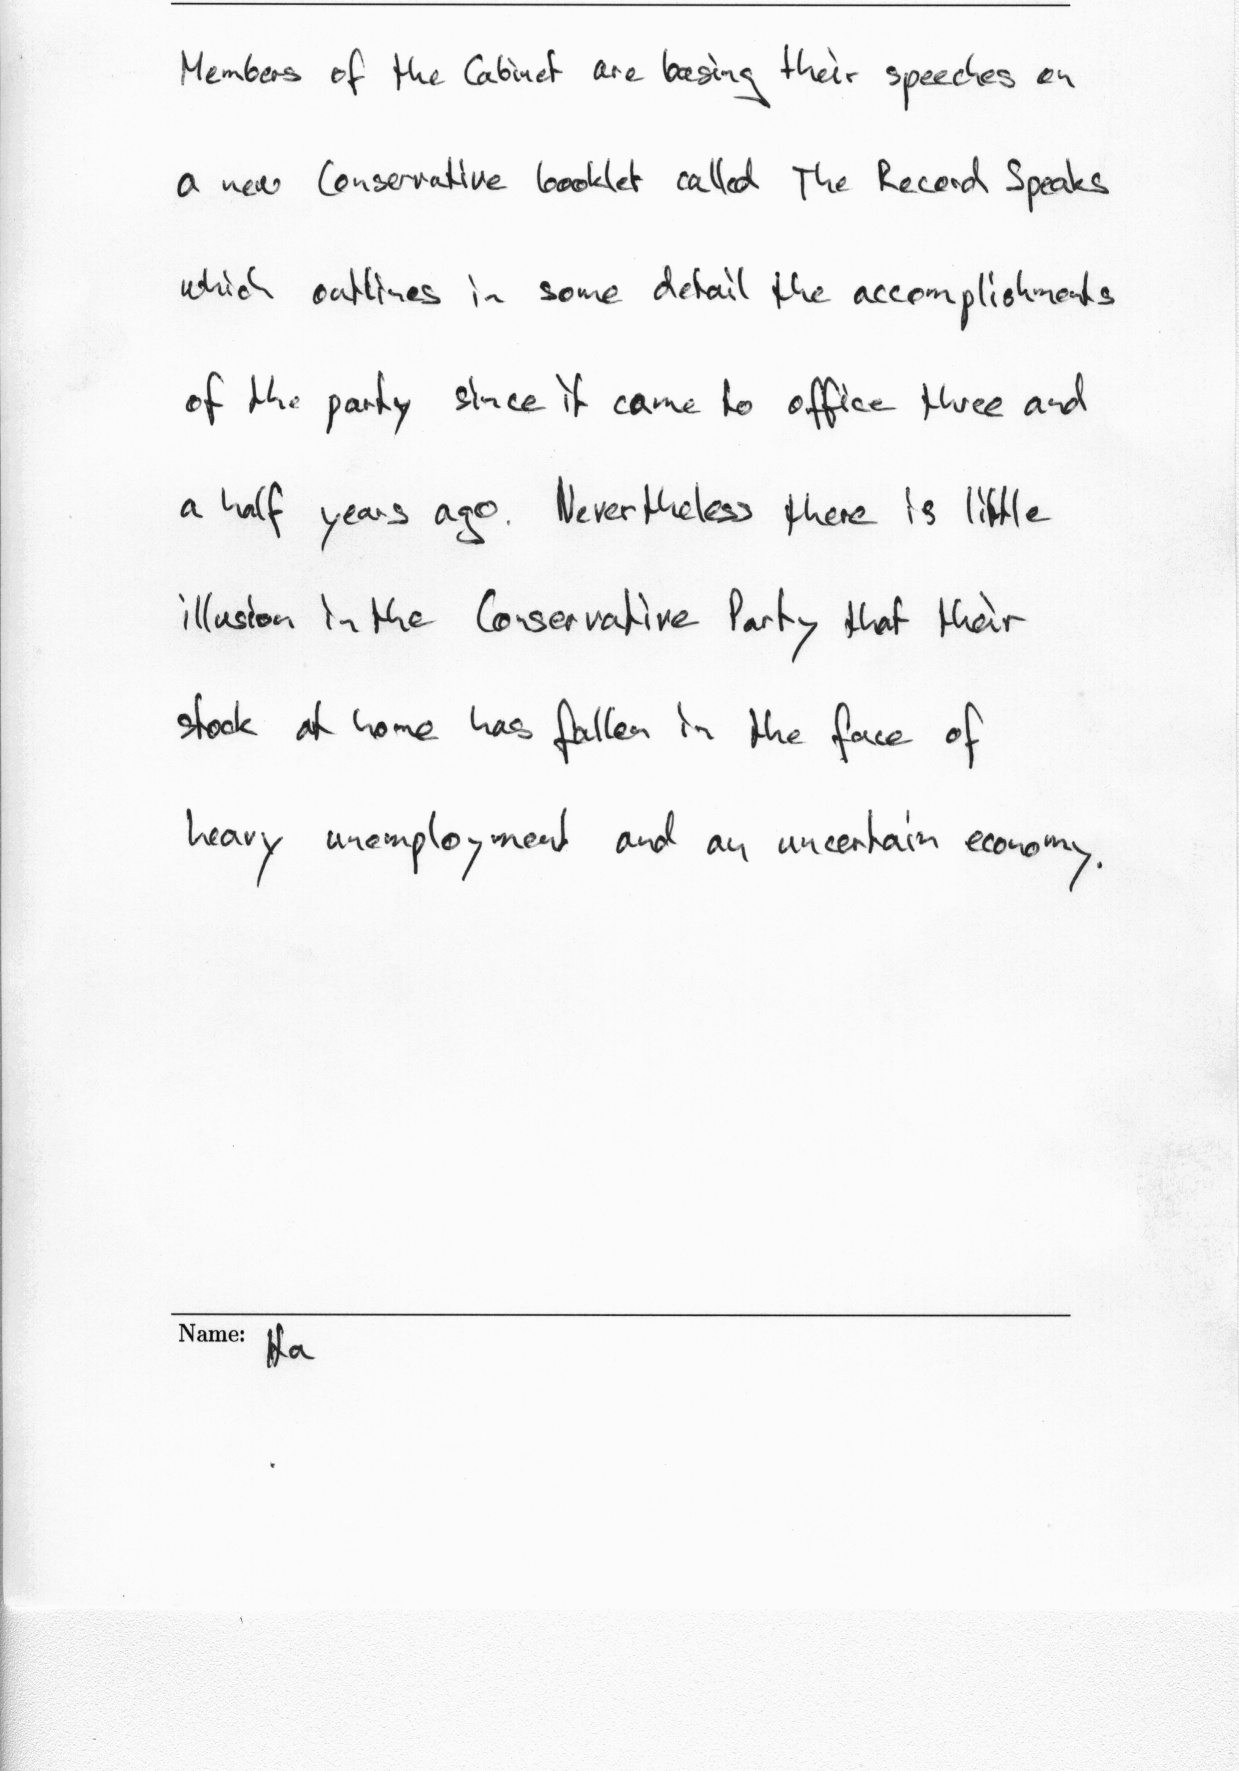 Members of the Cabinet are basing their speeches on
a new Conservative booklet called The Record Speaks
which outlines in some detail the accomplishments
of the party since it came to office three and
a half years ago. Nevertheless there is little
illusion in the Conservative Party that their
stock at home has fallen in the face of
heavy unemployment and an uncertain economy.
Name: Ha